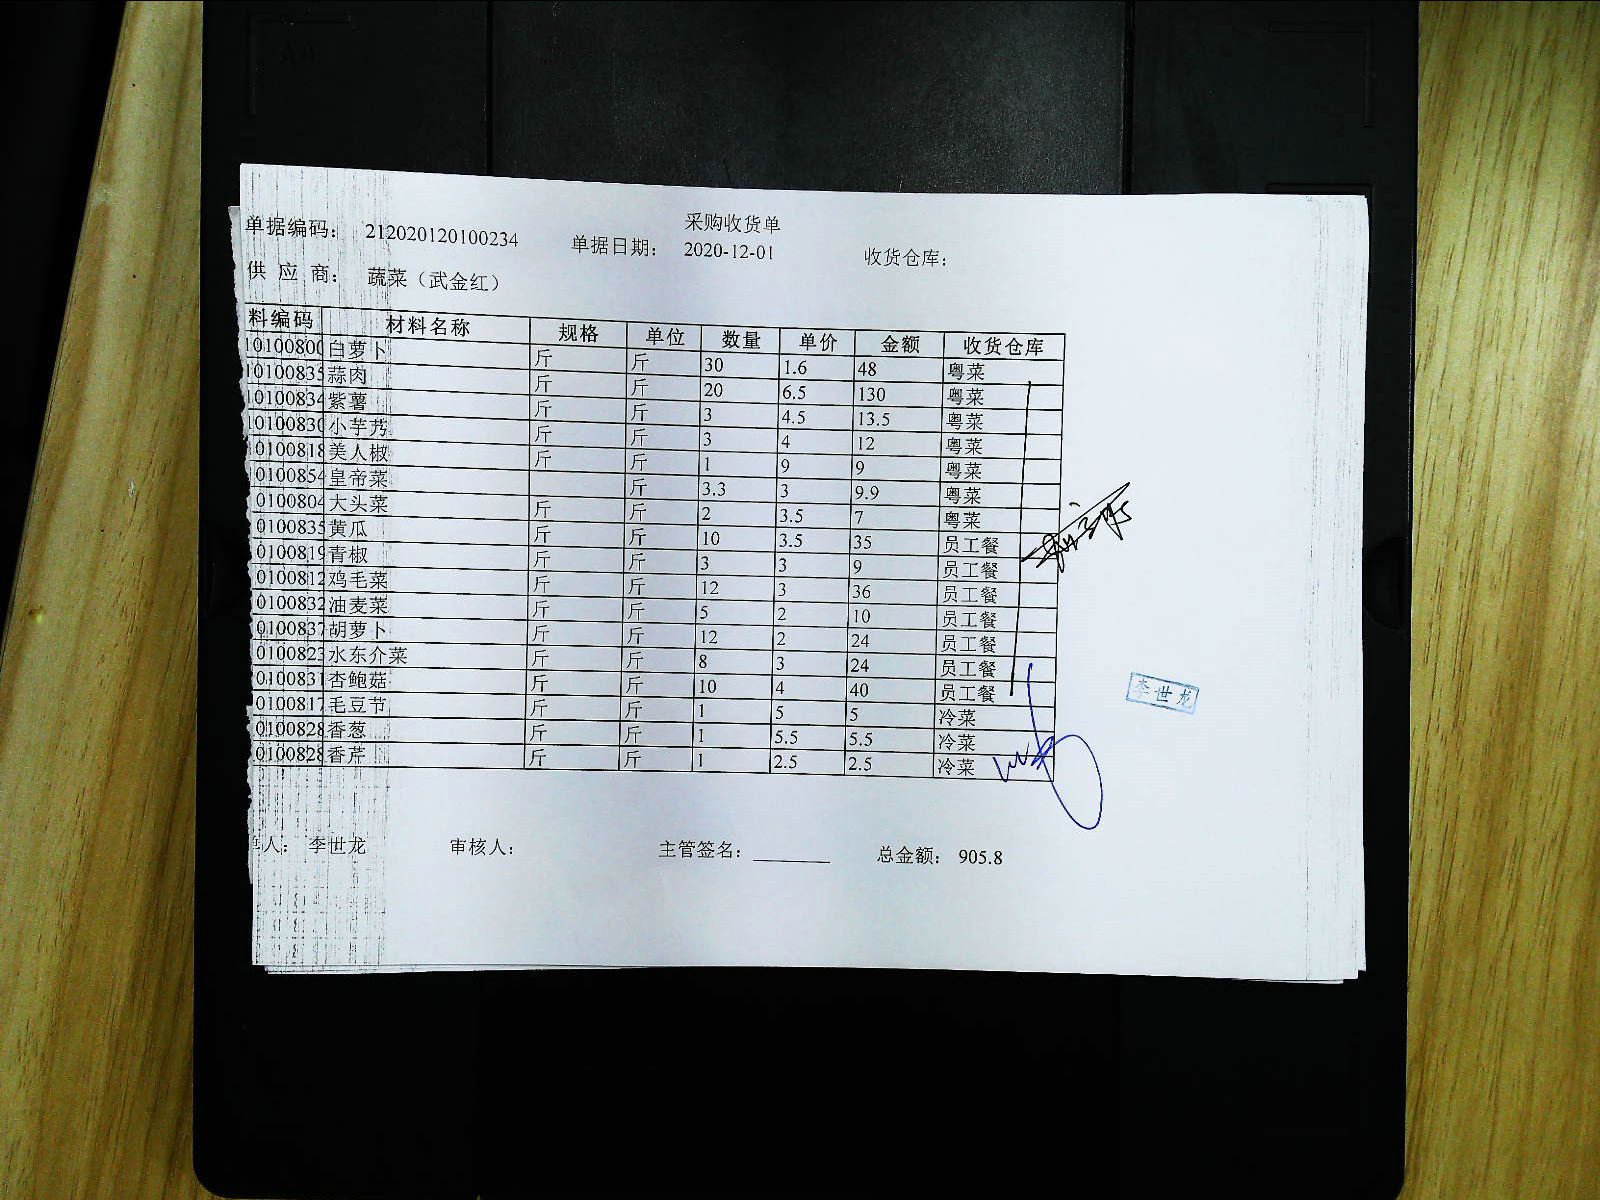 采购收货单
单据编码： 212020120100234 单据日期： 2020-12-01 收货仓库：
供 应 商： 蔬菜（武金红）
料编码 材料名称 规格 单位 数量 单价 金额 收货仓库
10100800 白萝卜 斤 斤 30 1.6 48 粤菜
10100835 蒜肉 斤 斤 20 6.5 130 粤菜
10100834 紫薯 斤 斤 3 4.5 13.5 粤菜
10100830 小芋艿 斤 斤 3 4 12 粤菜
0100818 美人椒 斤 斤 1 9 9 粤菜
0100854 皇帝菜 斤 3.3 3 9.9 粤菜
0100804 大头菜 斤 斤 2 3.5 7 粤菜
0100835 黄瓜 斤 斤 10 3.5 35 员工餐
0100819 青椒 斤 斤 3 3 9 员工餐
0100812 鸡毛菜 斤 斤 12 3 36 员工餐
0100832 油麦菜 斤 斤 5 2 10 员工餐
0100837 胡萝卜 斤 斤 12 2 24 员工餐
0100823 水东介菜 斤 斤 8 3 24 员工餐
0100831 杏鲍菇 斤 斤 10 4 40 员工餐
0100817 毛豆节 斤 斤 1 5 5 冷菜
0100828 香葱 斤 斤 1 5.5 5.5 冷菜
0100828 香芹 斤 斤 1 2.5 2.5 冷菜
李世龙
人： 李世龙 审核人： 主管签名： 总金额： 905.8